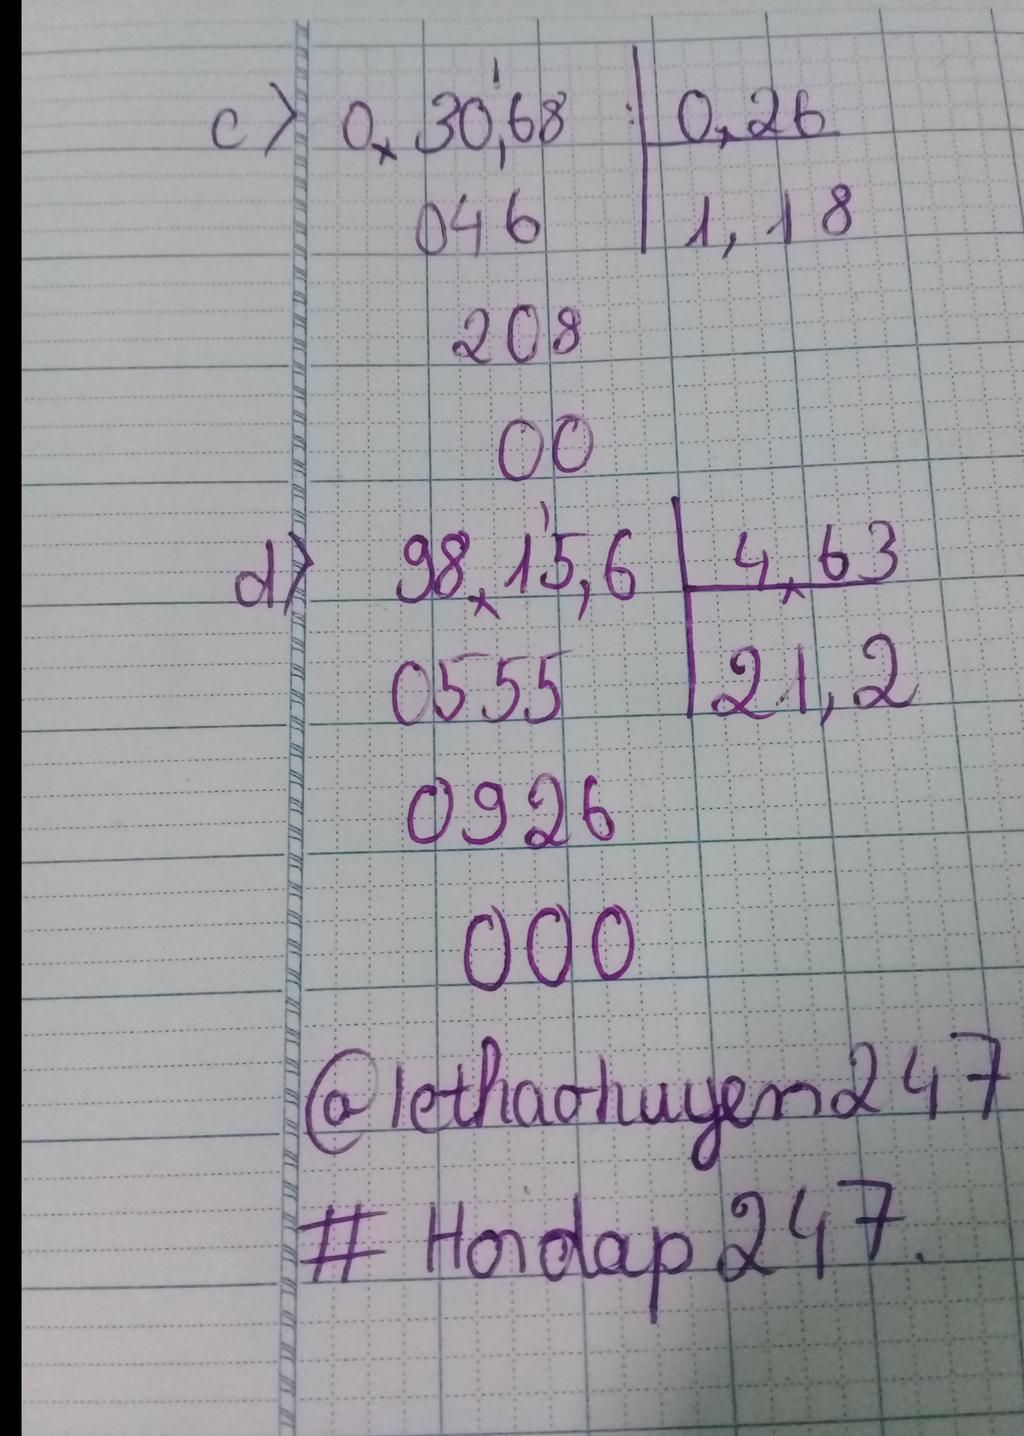 c) 0,30,68 : 0,26
046 1,18
208
00
d) 98,15,6 4,63
0555 21,2
0926
000
@lethaohuyen247
# Hoidap247.